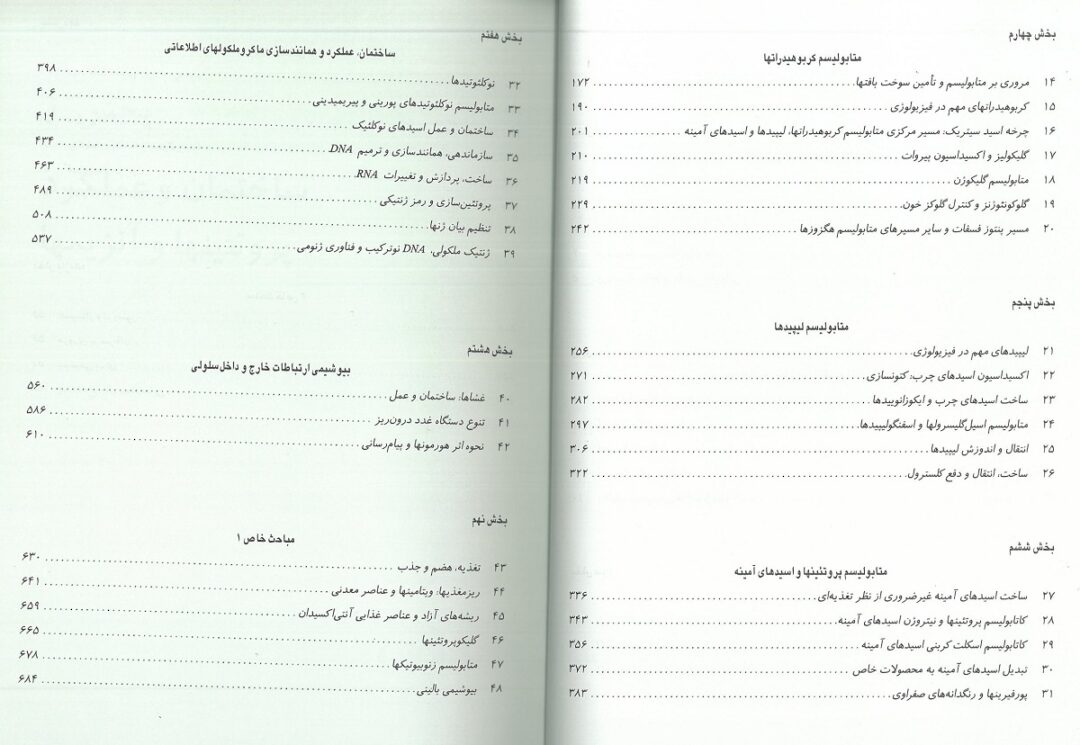 بخش چهارم
متابولیسم کربوهیدراتها
۱۴ مروری بر متابولیسم و تأمین سوخت بافتها ۱۷۲
۱۵ کربوهیدراتهای مهم در فیزیولوژی ۱۹۰
۱۶ چرخه اسید سیتریک: مسیر مرکزی متابولیسم کربوهیدراتها، لیپیدها و اسیدهای آمینه ۲۰۱
۱۷ گلیکولیز و اکسیداسیون پیروات ۲۱۰
۱۸ متابولیسم گلیکوژن ۲۱۹
۱۹ گلوکونئوژنز و کنترل گلوکز خون ۲۲۹
۲۰ مسیر پنتوز فسفات و سایر مسیرهای متابولیسم هگزوزها ۲۴۲
بخش پنجم
متابولیسم لیپیدها
۲۱ لیپیدهای مهم در فیزیولوژی ۲۵۶
۲۲ اکسیداسیون اسیدهای چرب: کتونسازی ۲۷۱
۲۳ ساخت اسیدهای چرب و ایکوزانوییدها ۲۸۲
۲۴ متابولیسم اسیل‌گلیسرولها و اسفنگولیپیدها ۲۹۷
۲۵ انتقال و اندوزش لیپیدها ۳۰۶
۲۶ ساخت، انتقال و دفع کلسترول ۳۲۲
بخش ششم
متابولیسم پروتئینها و اسیدهای آمینه
۲۷ ساخت اسیدهای آمینه غیرضروری از نظر تغذیه‌ای ۳۳۶
۲۸ کاتابولیسم پروتئینها و نیتروژن اسیدهای آمینه ۳۴۳
۲۹ کاتابولیسم اسکلت کربنی اسیدهای آمینه ۳۵۶
۳۰ تبدیل اسیدهای آمینه به محصولات خاص ۳۷۲
۳۱ پورفیرینها و رنگدانه‌های صفراوی ۳۸۳
بخش هفتم
ساختمان، عملکرد و همانندسازی ماکروملکولهای اطلاعاتی
۳۲ نوکلئوتیدها ۳۹۸
۳۳ متابولیسم نوکلئوتیدهای پورینی و پیریمیدینی ۴۰۶
۳۴ ساختمان و عمل اسیدهای نوکلئیک ۴۱۹
۳۵ سازماندهی، همانندسازی و ترمیم DNA ۴۳۴
۳۶ ساخت، پردازش و تغییرات RNA ۴۶۳
۳۷ پروتئین‌سازی و رمز ژنتیکی ۴۸۹
۳۸ تنظیم بیان ژنها ۵۰۸
۳۹ ژنتیک ملکولی، DNA نوترکیب و فناوری ژنومی ۵۳۷
بخش هشتم
بیوشیمی ارتباطات خارج و داخل سلولی
۴۰ غشاها: ساختمان و عمل ۵۶۰
۴۱ تنوع دستگاه غدد درون‌ریز ۵۸۶
۴۲ نحوه اثر هورمونها و پیام‌رسانی ۶۱۰
بخش نهم
مباحث خاص ۱
۴۳ تغذیه، هضم و جذب ۶۳۰
۴۴ ریزمغذیها: ویتامینها و عناصر معدنی ۶۴۱
۴۵ ریشه‌های آزاد و عناصر غذایی آنتی‌اکسیدان ۶۵۹
۴۶ گلیکوپروتئینها ۶۶۵
۴۷ متابولیسم زنوبیوتیکها ۶۷۸
۴۸ بیوشیمی بالینی ۶۸۴